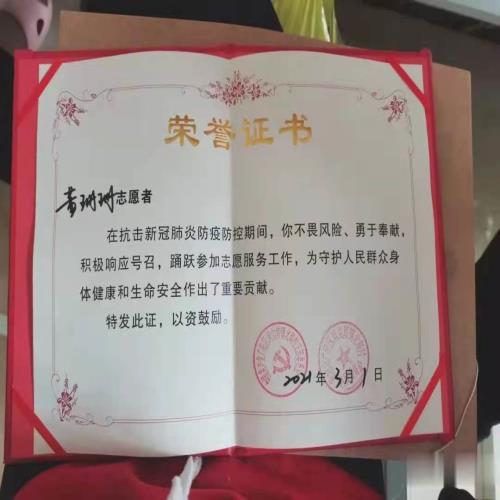 荣誉证书
珊珊志愿者
在抗击新冠肺炎防疫防控期间，你不畏风险、勇于奉献，
积极响应号召，踊跃参加志愿服务工作，为守护人民群众身
体健康和生命安全作出了重要贡献。
特发此证，以资鼓励。
2021年3月1日